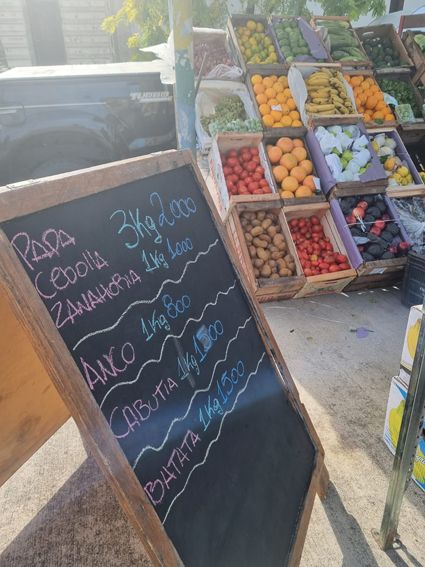 PAPA
Cebolla 3Kg 2000
ZANAHORIA 1Kg 1000
ANCO 1Kg 800
CABUTIA 1Kg
BATATA 1Kg 1500